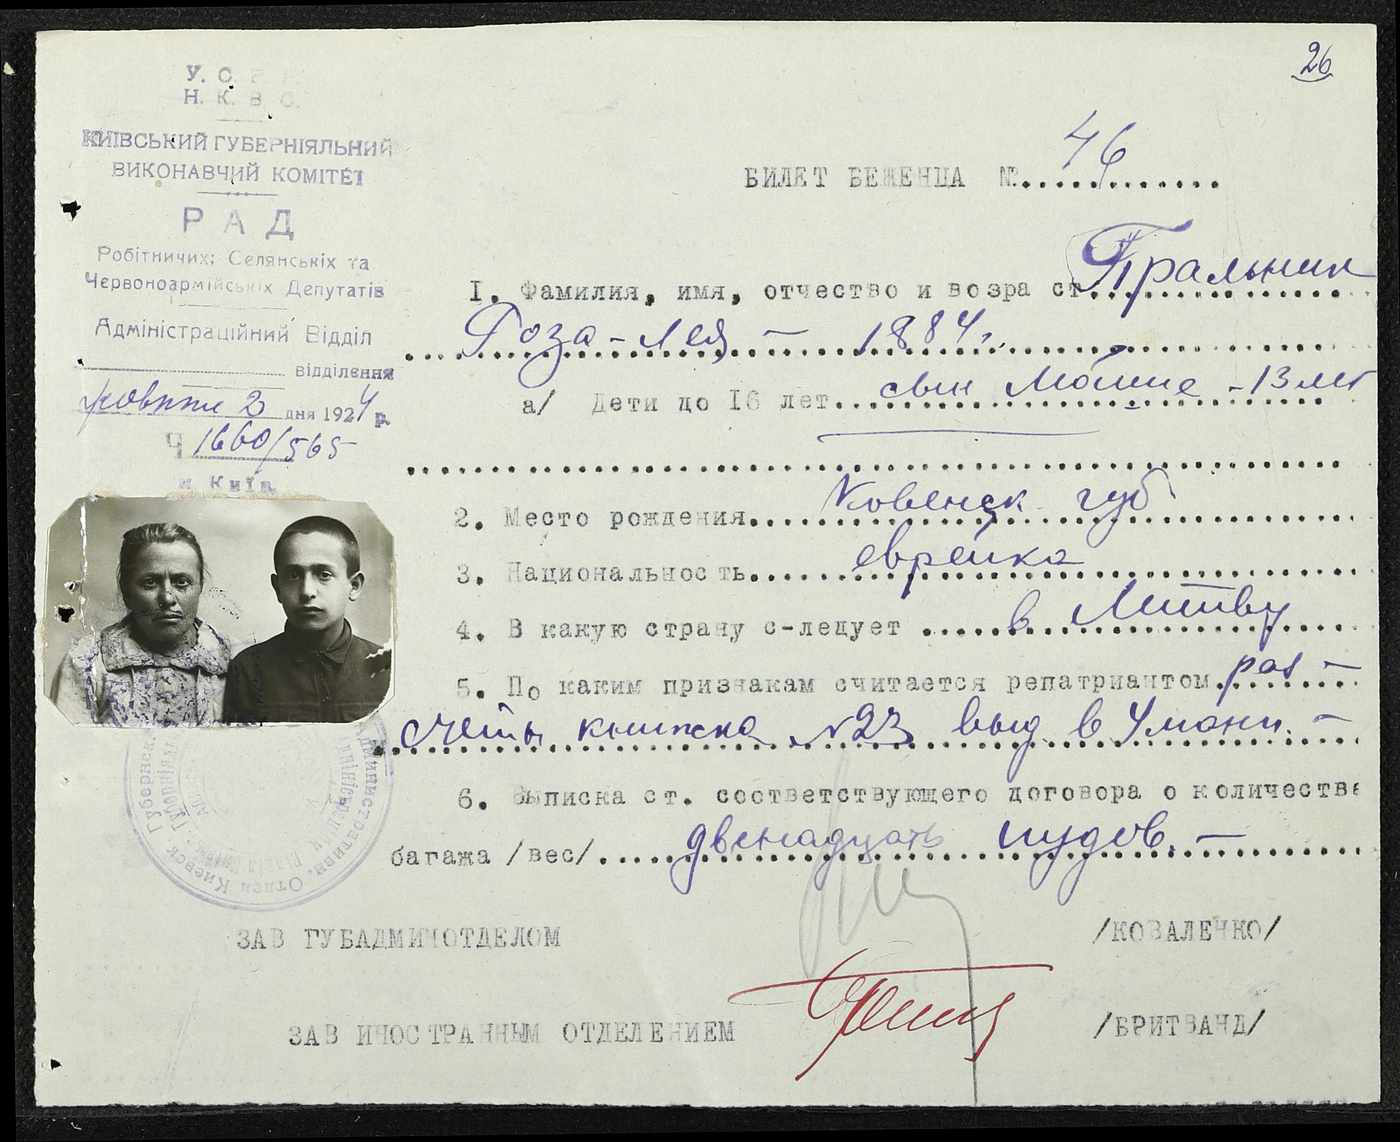 26
У. С.
Н. К. В. С.
КИЇВСЬКИЙ ГУБЕРНІЯЛЬНИЙ
ВИКОНАВЧИЙ КОМІТЕТ
РАД
Робітничих, Селянськіх та
Червоноармійськіх Депутатів
Адміністраційний Відділ
відділення
2 дня 1924 р.
Ч 1660/565
м Київ
БИЛЕТ БЕЖЕНЦА №. 46
I. Фамилия, имя, отчество и возра ст. Пральник
Роза-Лея – 1884 г.
а/ Дети до 16 лет. сын Мойше – 13 лет
2. Место рождения. Ковенск губ
3. Национальность. еврейка
4. В какую страну с-ледует в Литву
5. По каким признакам считается репатриантом. рас –
счеты книжка №23 выд в Умани. –
6. Выписка ст. соответствующего договора о количестве
багажа /вес/. двенадцать пудов. –
ЗАВ ГУБАДМИНОТДЕЛОМ /КОВАЛЕНКО/
ЗАВ ИНОСТРАННЫМ ОТДЕЛЕНИЕМ /БРИТВАНД/